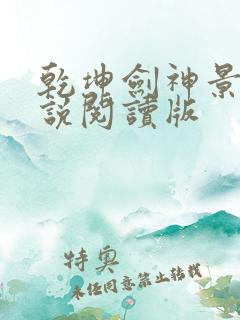 乾坤劍神景
說閱讀版
特奧
未經同意禁止轉載